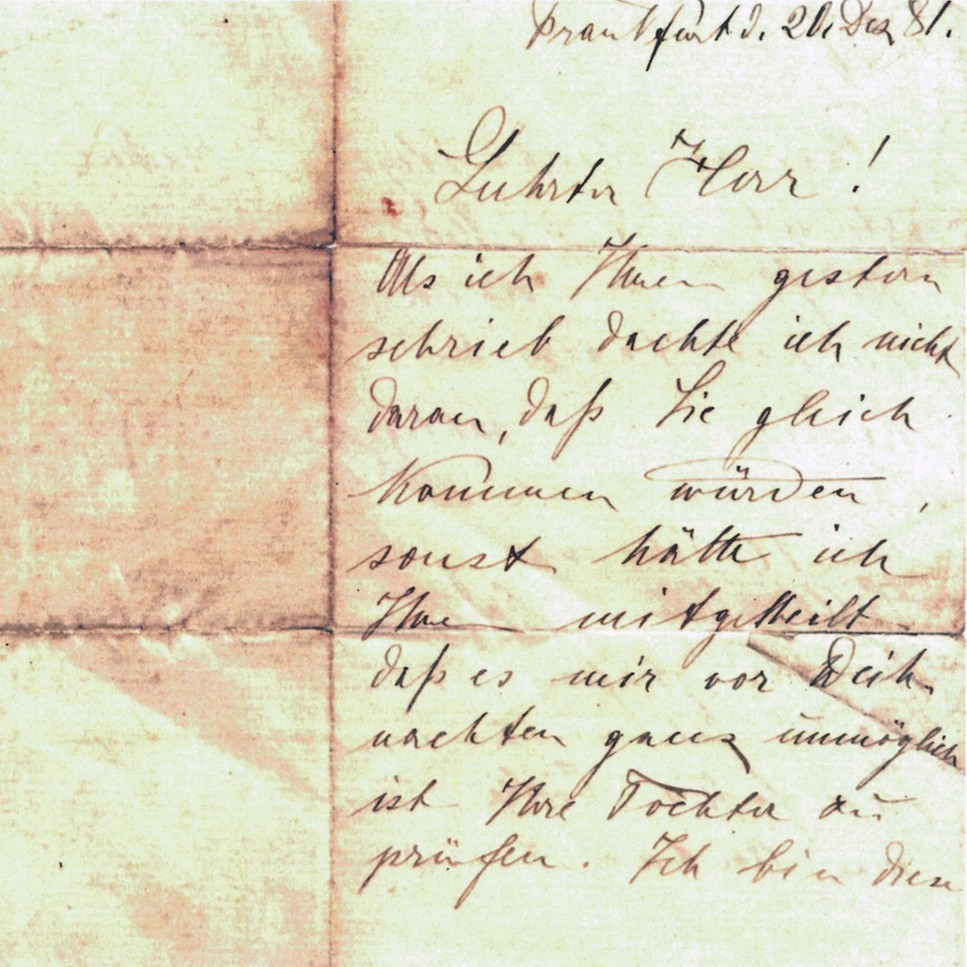 Frankfurt d. 20. Dez 81.
Geehrter Herr!
Als ich Ihnen gestern
schrieb dachte ich nicht
daran, daß Sie gleich
kommen würden,
sonst hätte ich
Ihnen mitgetheilt
daß es mir vor Weih-
nachten ganz unmöglich
ist Ihre Tochter zu
prüfen. Ich bin diese